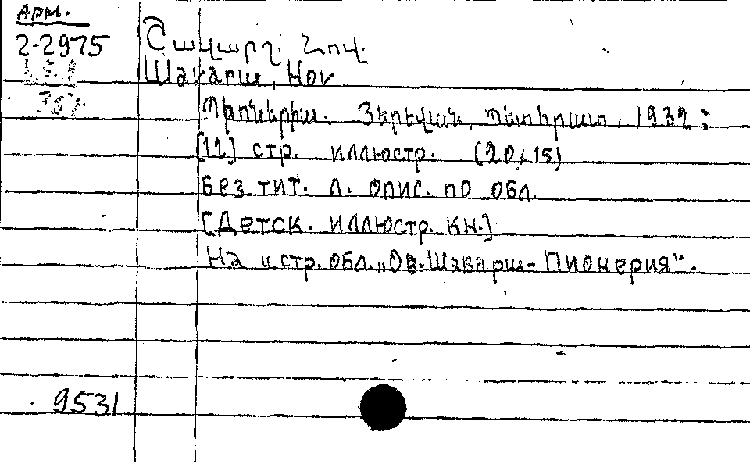 Арм.
2-2975
Շավարշ, Նով.
Шаварш, Нов
Պիոներիա. Յերեվան, Պետհրատ, 1932:
[12] стр. иллюстр. (20×15)
Без тит. л. опис. по обл.
[Детск. иллюстр. кн.]
На и стр. обл. „Ов. Шаварш - Пионерия".
9531